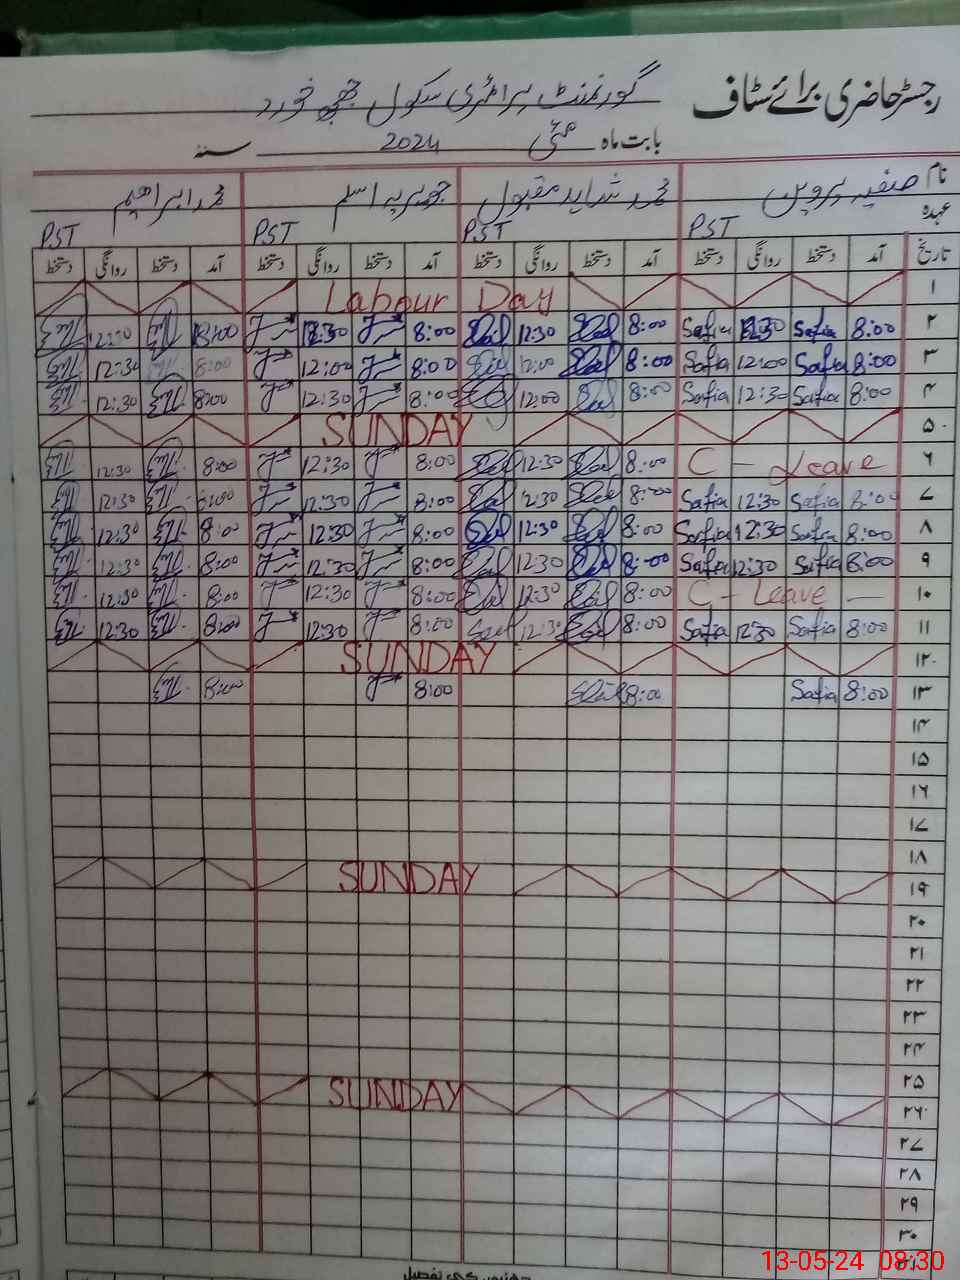 رجسٹر حاضری برائے سٹاف
گورنمنٹ پرائمری سکول
بابت ماہ مئی 2024 سنہ
نام صفیہ پروین محمد شاہد مقبول جویریہ اسلم محمد ابراہیم
عہدہ PST PST PST PST
تاریخ آمد دستخط روانگی دستخط آمد دستخط روانگی دستخط آمد دستخط روانگی دستخط آمد دستخط روانگی دستخط
۱ Labour Day
۲ 8:00 Safia 12:30 Safia 8:00 12:30 8:00 12:30 8:00 12:30
۳ 8:00 Safia 12:00 Safia 8:00 12:00 8:00 12:00 8:00 12:30
۴ 8:00 Safia 12:30 Safia 8:00 12:00 8:00 12:30 8:00 12:30
۵ SUNDAY
۶ C - Leave 8:00 12:30 8:00 12:30 8:00 12:30
۷ 8:00 Safia 12:30 Safia 8:00 12:30 8:00 12:30 8:00 12:30
۸ 8:00 Safia 12:30 Safia 8:00 12:30 8:00 12:30 8:00 12:30
۹ 8:00 Safia 12:30 Safia 8:00 12:30 8:00 12:30 8:00 12:30
۱۰ C - Leave — 8:00 12:30 8:00 12:30 8:00 12:30
۱۱ 8:00 Safia 12:30 Safia 8:00 12:30 8:00 12:30 8:00 12:30
۱۲ SUNDAY
۱۳ 8:00 Safia 8:00 8:00 8:00
۱۴
۱۵
۱۶
۱۷
۱۸
۱۹ SUNDAY
۲۰
۲۱
۲۲
۲۳
۲۴
۲۵
۲۶ SUNDAY
۲۷
۲۸
۲۹
۳۰
13-05-24 08:30